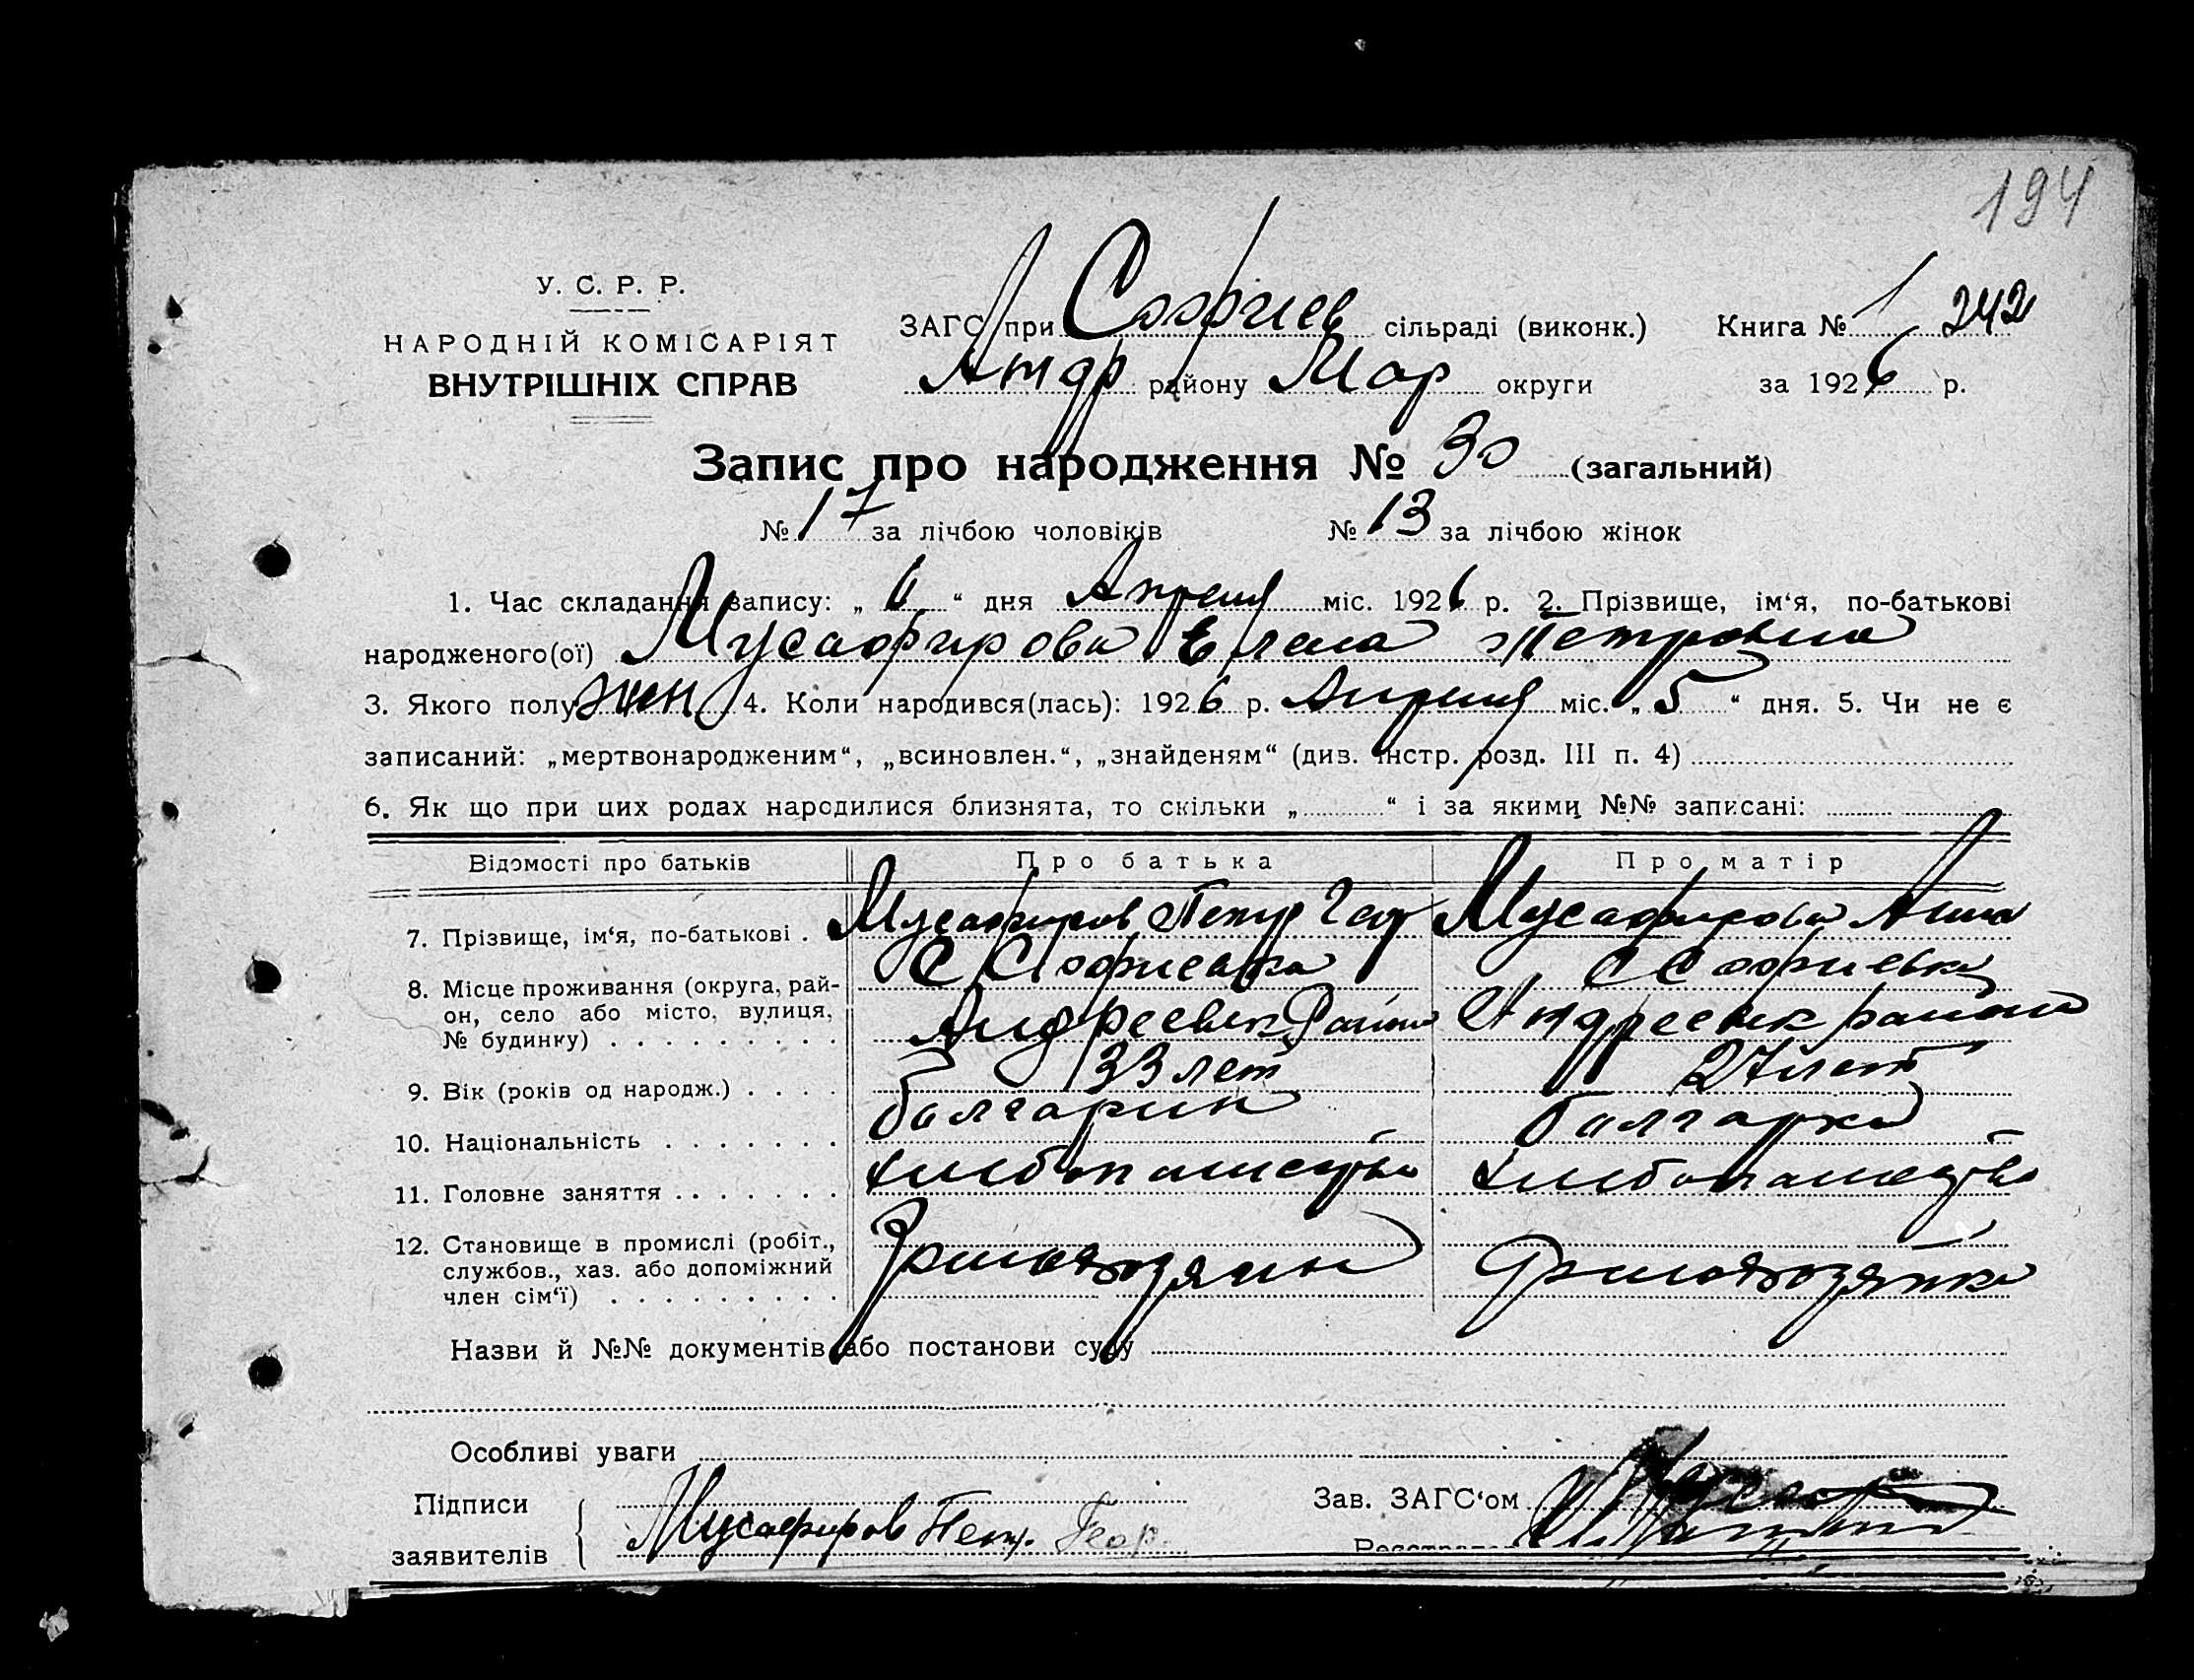 194
У. С. Р. Р.
НАРОДНІЙ КОМІСАРІЯТ
ВНУТРІШНІХ СПРАВ
ЗАГС при Софиев сільраді (виконк.) Книга № 1 242
Андр району Мар округи за 1926 р.
Запис про народження № 30 (загальний)
№ 17 за лічбою чоловіків № 13 за лічбою жінок
1. Час складання запису: „ “ дня Апреля міс. 1926 р. 2. Прізвище, ім‘я, по-батькові
народженого(ої) Мусафирова Елена Петровна
3. Якого полу жен 4. Коли народився(лась): 1926 р. Апреля міс. „ 5 “ дня. 5. Чи не є
записаний: „мертвонародженим“, „всиновлен.“, „знайденям“ (див. інстр. розд. III п. 4)
6. Як що при цих родах народилися близнята, то скільки „ “ і за якими №№ записані:
Відомості про батьків Про батька Про матір
7. Прізвище, ім‘я, по-батькові . Мусафиров Петр Геор Мусафирова Анна
8. Місце проживання (округа, рай-
он, село або місто, вулиця,
№ будинку) . . . . . . . . .
С Софиевка С Софиевка
Андреевск Района Андреевск района
9. Вік (років од народж.) . . . . 33 лет 27 лет
10. Національність . . . . . . . болгарин болгарка
11. Головне заняття . . . . . . . хлебопашество хлебопашество
12. Становище в промислі (робіт.,
службов., хаз. або допоміжний
член сім‘ї) . . . . . . . . .
Назви й №№ документів або постанови суду
Особливі уваги
Підписи
заявителів
Мусафиров Петр. Геор.
Зав. ЗАГС‘ом
Реєстратор